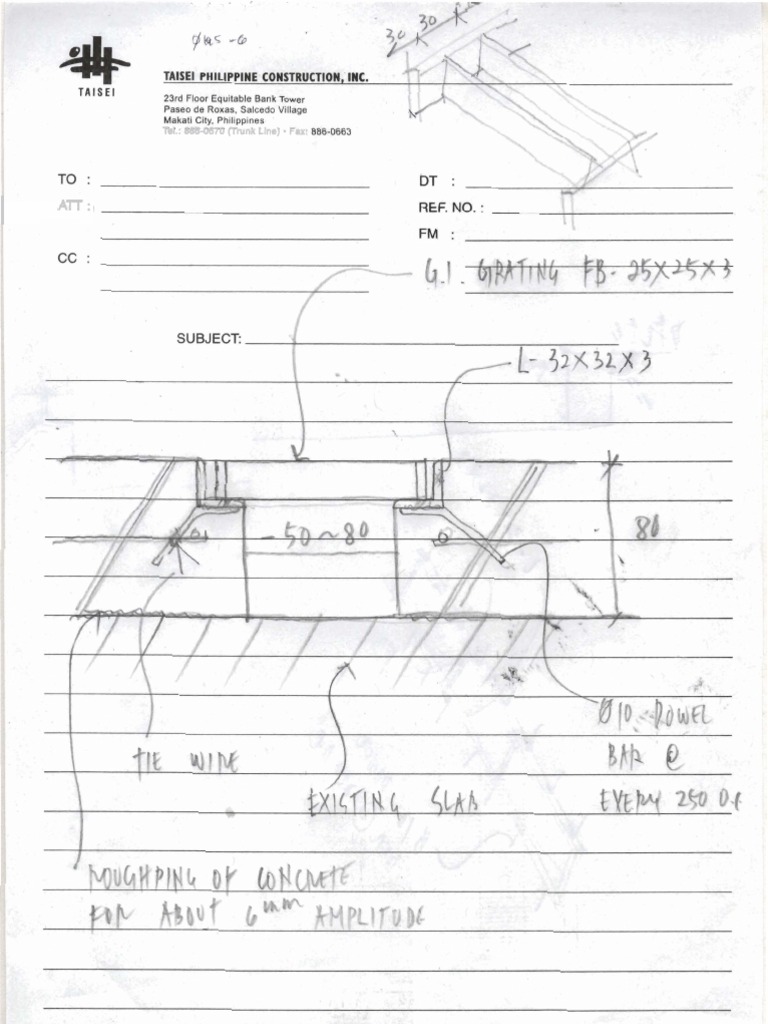 TAISEI
TAISEI PHILIPPINE CONSTRUCTION, INC.
23rd Floor Equitable Bank Tower
Paseo de Roxas, Salcedo Village
Makati City, Philippines
Tel.: 886-0570 (Trunk Line) • Fax: 886-0663
30 30
TO :
DT :
ATT :
REF. NO. :
FM :
CC :
G.I. GRATING FB- 25X25X3
SUBJECT:
L- 32X32X3
50~80
80
Ø10 DOWEL
BAR @
EVERY 250 O.C
TIE WIRE
EXISTING SLAB
ROUGHPING OF CONCRETE
FOR ABOUT 6mm AMPLITUDE